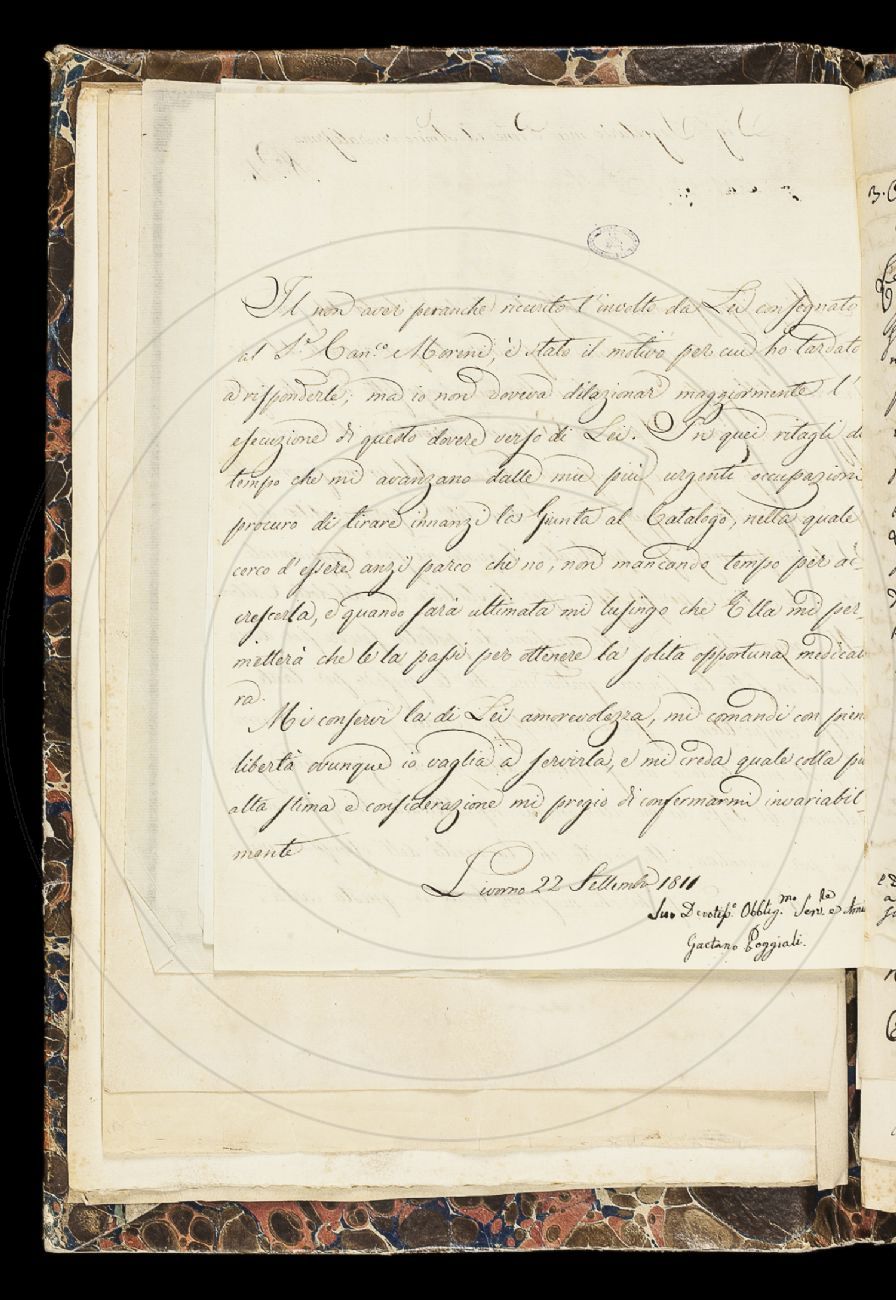 Il non aver peranche ricevuto l'involto da Lei consegnato
al S.r Can.co Moreni, è stato il motivo per cui ho tardato
a risponderle; ma io non doveva dilazionar maggiormente l'
esecuzione di questo dovere verso di Lei. In quei ritagli di
tempo che mi avanzano dalle mie più urgenti occupazioni
procuro di tirare innanzi la Giunta al Catalogo, nella quale
cerco d'essere anzi parco che no, non mancando tempo per ac-
crescerla, e quando sarà ultimata mi lusingo che Ella mi per-
metterà che le la passi per ottenere la solita opportuna medicatu
ra.
Mi conservi la di Lei amorevolezza, mi comandi con piena
libertà ovunque io vaglia a servirla, e mi creda quale colla più
alta stima e considerazione mi pregio di confermarmi invariabil-
mente
Livorno 22 Settembre 1811
Suo Devotiss.o Obblig.mo Serv.re e Amico
Gaetano Poggiali.